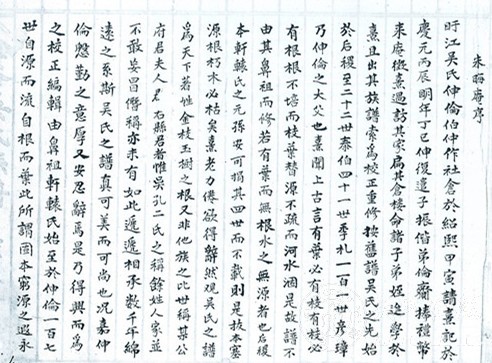 朱晦庵序
盱江吳氏仲倫伯仲作社倉於紹熙甲寅請熹記於
慶元丙辰明年丁巳仲復遣子振偕弟倫齋捧禮幣
來庵徵熹過訪其家扁其倉樓命諸子弟姪造學於
熹且出其族譜索爲校正重修按舊譜吳氏之先始
於后稷至二十二世泰伯四十一世季札一百一世彦璋
乃仲倫之大父也熹聞上古言有葉必有枝有枝必
有根根不培而枝葉替源不疏而河水涸是故譜不
由其鼻祖而修若有葉而無根水之無源者也后稷
本軒轅氏之元孫安可捐其四世而不載則是拔本塞
源根朽木必枯矣熹老力倦欲得辭然觀吳氏之譜
爲天下著姓金枝玉樹之根又非他族之比世稱某公
府君夫人名右縣君者惟吳孔二氏之稱餘姓人家並
不敢妄冒僭稱亦未有如此遞遞相承數千年綿
遠之系斯吳氏之譜真可美而可尚也况嘉仲
倫慇勤之意厚又安忍辭焉是乃得興而爲
之校正編輯由鼻祖軒轅氏始至於仲倫一百七
世自源而流自根而葉此所謂固本窮源之遐永